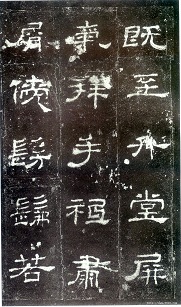 既至升堂屏
氣拜手祗肅
屑僾髣髴若